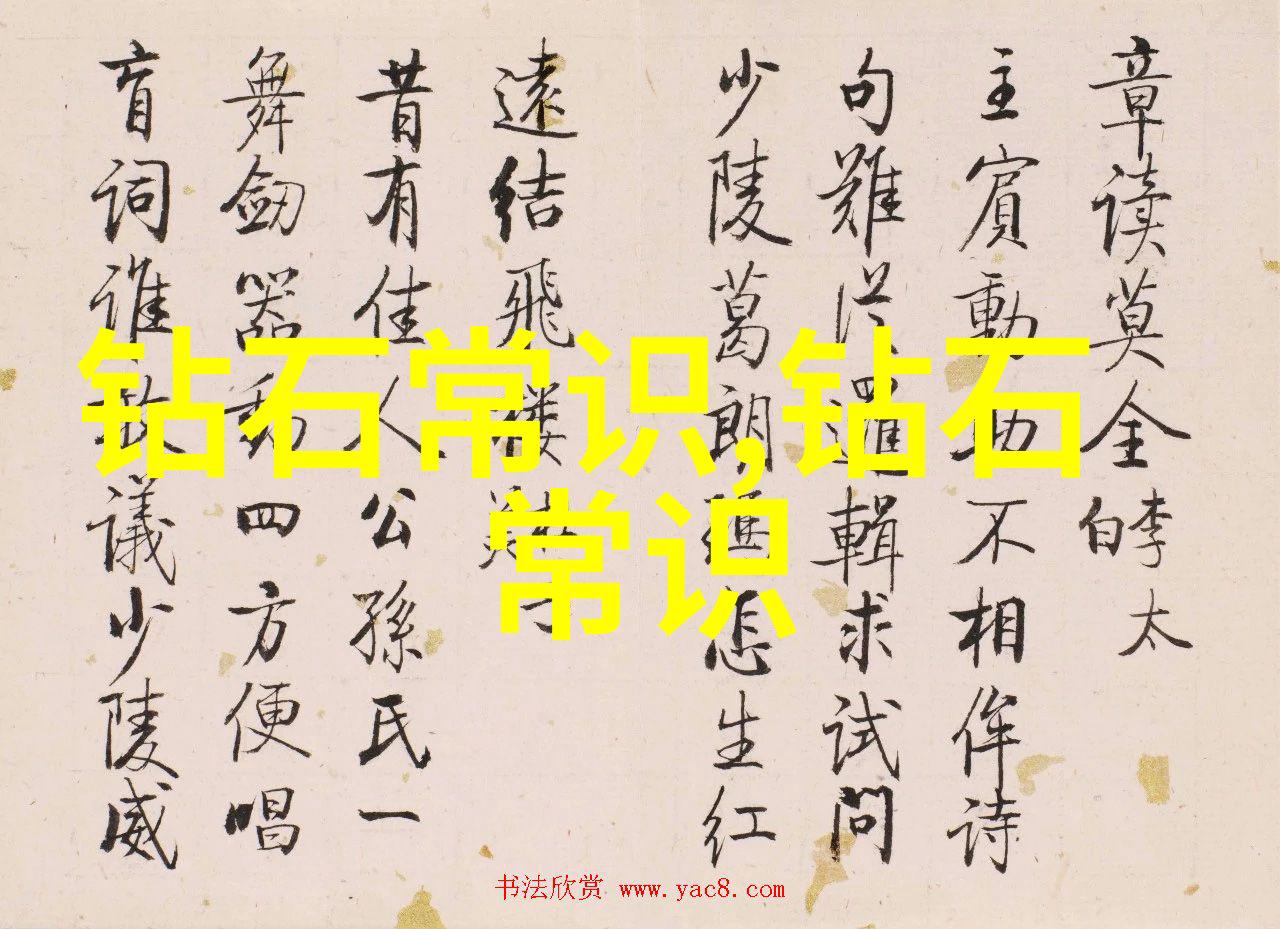 章读莫全李太白
主賓動 不相侔诗
句難 邏輯求试問
少陵葛朗 怎生红
遠结飛
昔有佳人公孫氏一
舞劒器動四方便唱
盲词谁敢議少陵威
钻石常识,钻石
常识
书法欣赏 www.yac8.com